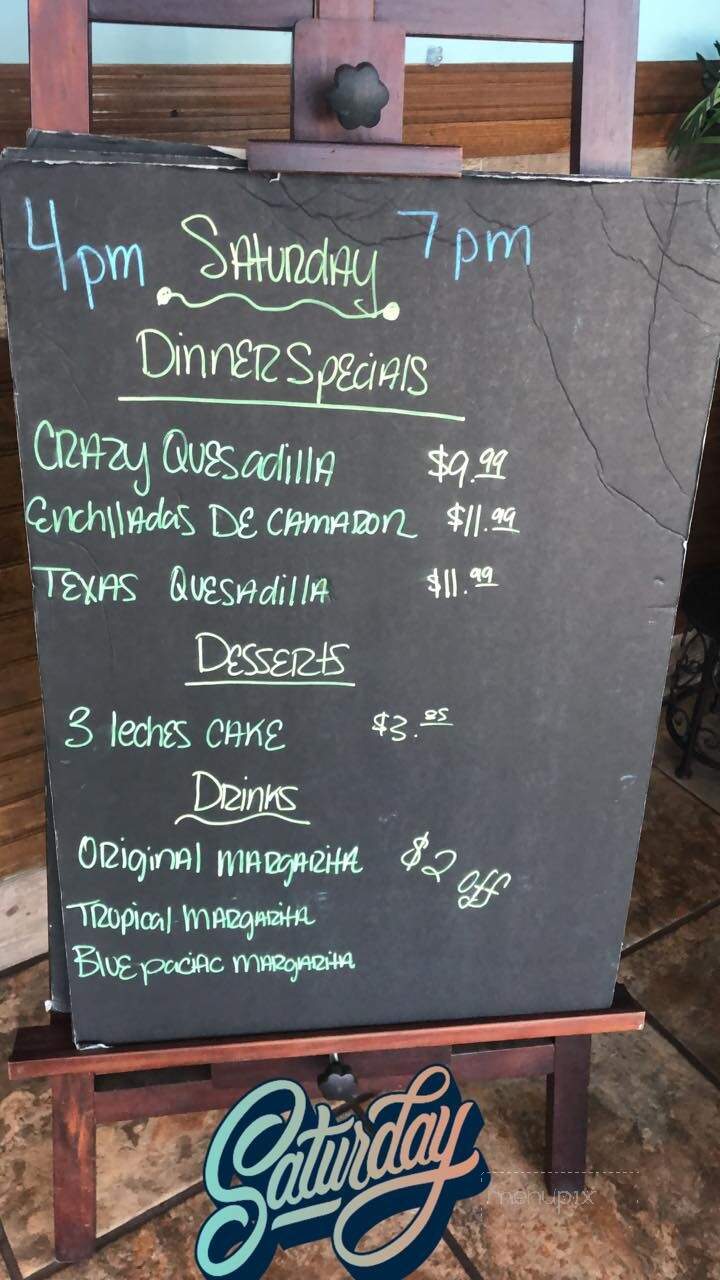 4pm Saturday 7pm
Dinner Specials
Crazy Quesadilla $9.99
Enchilladas De Camaron $11.99
Texas Quesadilla $11.99
Desserts
3 leches Cake $3.85
Drinks
Original Margarita $2 off
Tropical Margarita
Blue pacific Margarita
Saturday
menupix